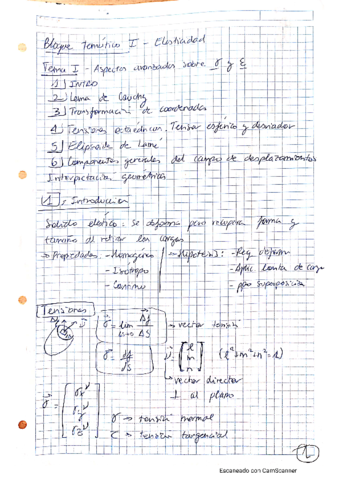 Bloque Temático I - Elasticidad
Tema I - Aspectos avanzados sobre σ y ε
1) INTRO
2) Lema de Cauchy
3) Transformación de coordenadas
4) Tensiones octaédricas. Tensor esférico y desviador
5) Elipsoide de Lamé
6) Componentes generales del campo de desplazamientos
Interpretación geométrica
1) Introducción
Sólido elástico: Se deforma pero recupera forma y
tamaño al retirar las cargas
→ Propiedades - Homogéneo → Hipótesis: - Peq deform
- Isótropo - Aplic lenta de carga
- Continuo - ppo superposición
Tensiones
σ = lim Δf/ΔS → vector tensión
σ = df/dS ν = [l m n] (l²+m²+n²=1)
vector director
⊥ al plano
σ → tensión normal
τ → tensión tangencial
1
Escaneado con CamScanner